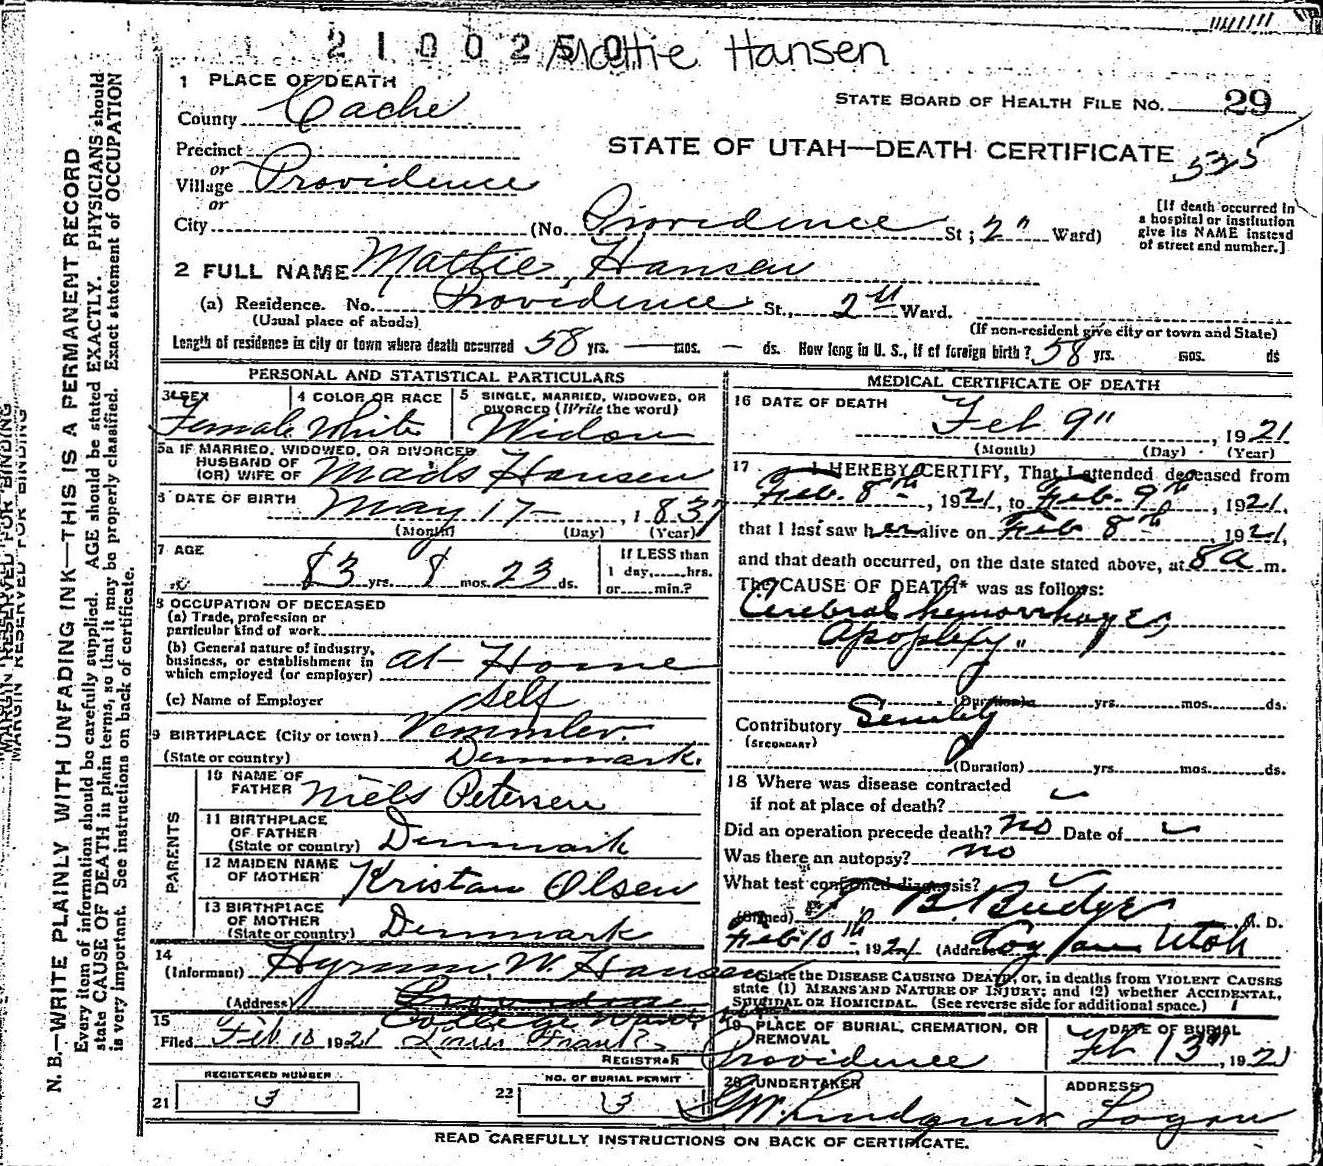 2100250
Mattie Hansen
1 PLACE OF DEATH
County Cache
STATE BOARD OF HEALTH FILE NO. 29
Precinct
or
Village Providence
STATE OF UTAH—DEATH CERTIFICATE 535
or
City (No Providence St; 2" Ward)
[If death occurred in
a hospital or institution
give its NAME instead
of street and number.]
2 FULL NAME Mattie Hansen
(a) Residence. No. Providence St., 2nd Ward.
(Usual place of abode)
(If non-resident give city or town and State)
Length of residence in city or town where death occurred 58 yrs. — mos. — ds. How long in U. S., if of foreign birth? 58 yrs. mos. ds
PERSONAL AND STATISTICAL PARTICULARS
3 SEX
Female
4 COLOR OR RACE
White
5 SINGLE, MARRIED, WIDOWED, OR
DIVORCED (Write the word)
Widow
5a IF MARRIED, WIDOWED, OR DIVORCED
HUSBAND OF
(OR) WIFE OF Mads Hansen
6 DATE OF BIRTH
May 17 – , 1837
(Month) (Day) (Year)
7 AGE
83 yrs. 8 mos. 23 ds.
If LESS than
1 day,......hrs.
or......min.?
8 OCCUPATION OF DECEASED
(a) Trade, profession or
particular kind of work
(b) General nature of industry,
business, or establishment in
which employed (or employer) at Home
(c) Name of Employer Self
9 BIRTHPLACE (City or town) Vemmlev.
(State or country) Denmark.
PARENTS
10 NAME OF
FATHER Niels Petersen
11 BIRTHPLACE
OF FATHER
(State or country) Denmark
12 MAIDEN NAME
OF MOTHER Kristan Olsen
13 BIRTHPLACE
OF MOTHER
(State or country) Denmark
14
(Informant) Hyrum W. Hansen
(Address) Providence
College Ward
15
Filed Feb 10 1921 Louis Frank
REGISTRAR
REGISTERED NUMBER
21 3
NO. OF BURIAL PERMIT
22 3
MEDICAL CERTIFICATE OF DEATH
16 DATE OF DEATH
Feb 9" , 1921
(Month) (Day) (Year)
17 I HEREBY CERTIFY, That I attended deceased from
Feb. 8th, 1921, to Feb. 9th, 1921,
that I last saw her alive on Feb 8th, 1921,
and that death occurred, on the date stated above, at 8a m.
The CAUSE OF DEATH* was as follows:
Cerebral hemorrhage,
Apoplexy"
(Duration) yrs. mos. ds.
Contributory Senility
(SECONDARY)
(Duration) yrs. mos. ds.
18 Where was disease contracted
if not at place of death?
Did an operation precede death? no Date of
Was there an autopsy? no
What test confirmed diagnosis?
(Signed) T. B. Budge M. D.
Feb 10th, 1921 (Address) Logan Utah
*State the DISEASE CAUSING DEATH, or, in deaths from VIOLENT CAUSES
state (1) MEANS AND NATURE OF INJURY; and (2) whether ACCIDENTAL,
SUICIDAL OR HOMICIDAL. (See reverse side for additional space.)
19 PLACE OF BURIAL, CREMATION, OR
REMOVAL
Providence
DATE OF BURIAL
Feb 13th, 1921
20 UNDERTAKER
G.W. Lindquist
ADDRESS
Logan
READ CAREFULLY INSTRUCTIONS ON BACK OF CERTIFICATE.
MARGIN RESERVED FOR BINDING
MARGIN RESERVED FOR BINDING
N. B.—WRITE PLAINLY WITH UNFADING INK—THIS IS A PERMANENT RECORD
Every item of information should be carefully supplied. AGE should be stated EXACTLY. PHYSICIANS should
state CAUSE OF DEATH in plain terms, so that it may be properly classified. Exact statement of OCCUPATION
is very important. See instructions on back of certificate.